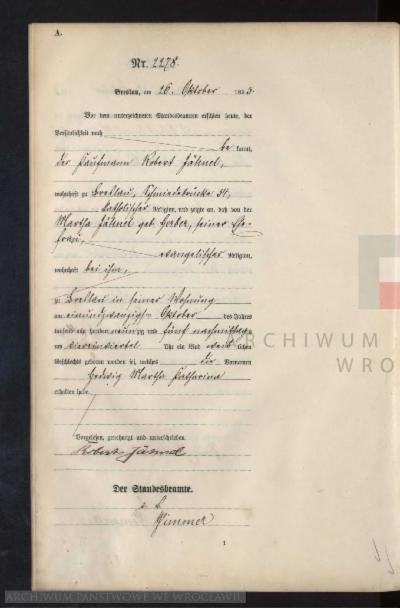 A.
Nr. 2278.
Breslau, am 26. Oktober 1895.
Vor dem unterzeichneten Standesbeamten erschien heute, der
Persönlichkeit nach
be kannt,
der Kaufmann Robert Jähnel,
wohnhaft zu Breslau, Schmiedebrücke 54,
katholischer Religion, und zeigte an, daß von der
Martha Jähnel geb. seiner Ehe-
frau,
evangelischer Religion,
wohnhaft bei ihm,
zu Breslau in seiner Wohnung
am einundzwanzigsten Oktober des Jahres
tausend acht hundert neunzig und fünf nachmittags
um viereinviertel Uhr ein Kind weib lichen
Geschlechts geboren worden sei, welches die Vornamen
Hedwig Martha Katharina
erhalten habe.
Vorgelesen, genehmigt und unterschrieben.
Robert Jähnel
Der Standesbeamte.
1
ARCHIWUM
WRO
ARCHIWUM PAŃSTWOWE WE WROCŁAWIU